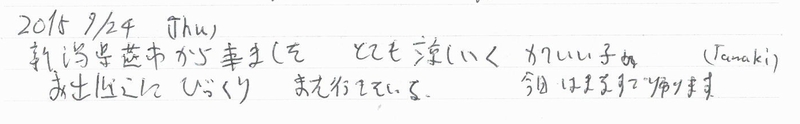 2015 9/24 Thu,
新潟県燕市から来ました とても涼しく かわいい子 (Tanaki)
お出迎えに びっくり また行きている. 今日はまるすで帰ります